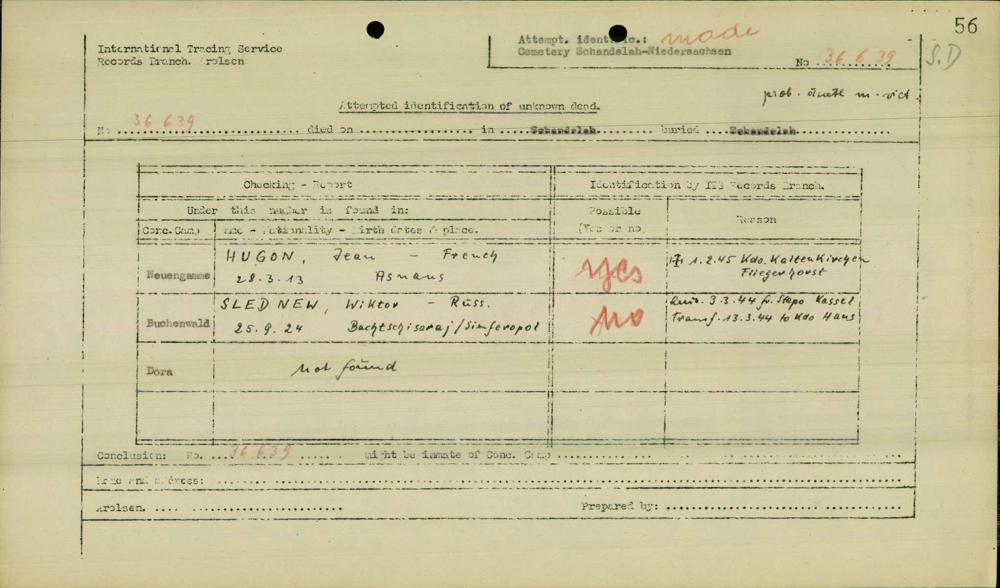 56
International Tracing Service
Records Branch. Arolsen
Attempt. identific.: made
Cemetery Schandelah-Niedersachsen
No 36.6.39
S.D
prob. death m. vict.
Attempted identification of unknown dead.
No 36 639 died on in Schandelah buried Schandelah
Checking - Report
Identification by ITS Records Branch.
Under this number is found in:
Possible
(Yes or no)
Reason
Conc.Camp
Name - Nationality - Birth dates & place.
Neuengamme
HUGON, Jean - French
28.3.13 Asnans
yes
1.2.45 Kdo. Kaltenkirchen
Fliegerhorst
Buchenwald
SLEDNEW, Wiktor - Russ.
25.9.24 Bachtschisaraj/Simferopol
No
3.3.44 fr. Stapo Kassel
Transf. 13.3.44 to Kdo Hans
Dora
not found
Conclusion: No. 36 639 might be inmate of Conc. Camp
Name and address:
Arolsen.
Prepared by: